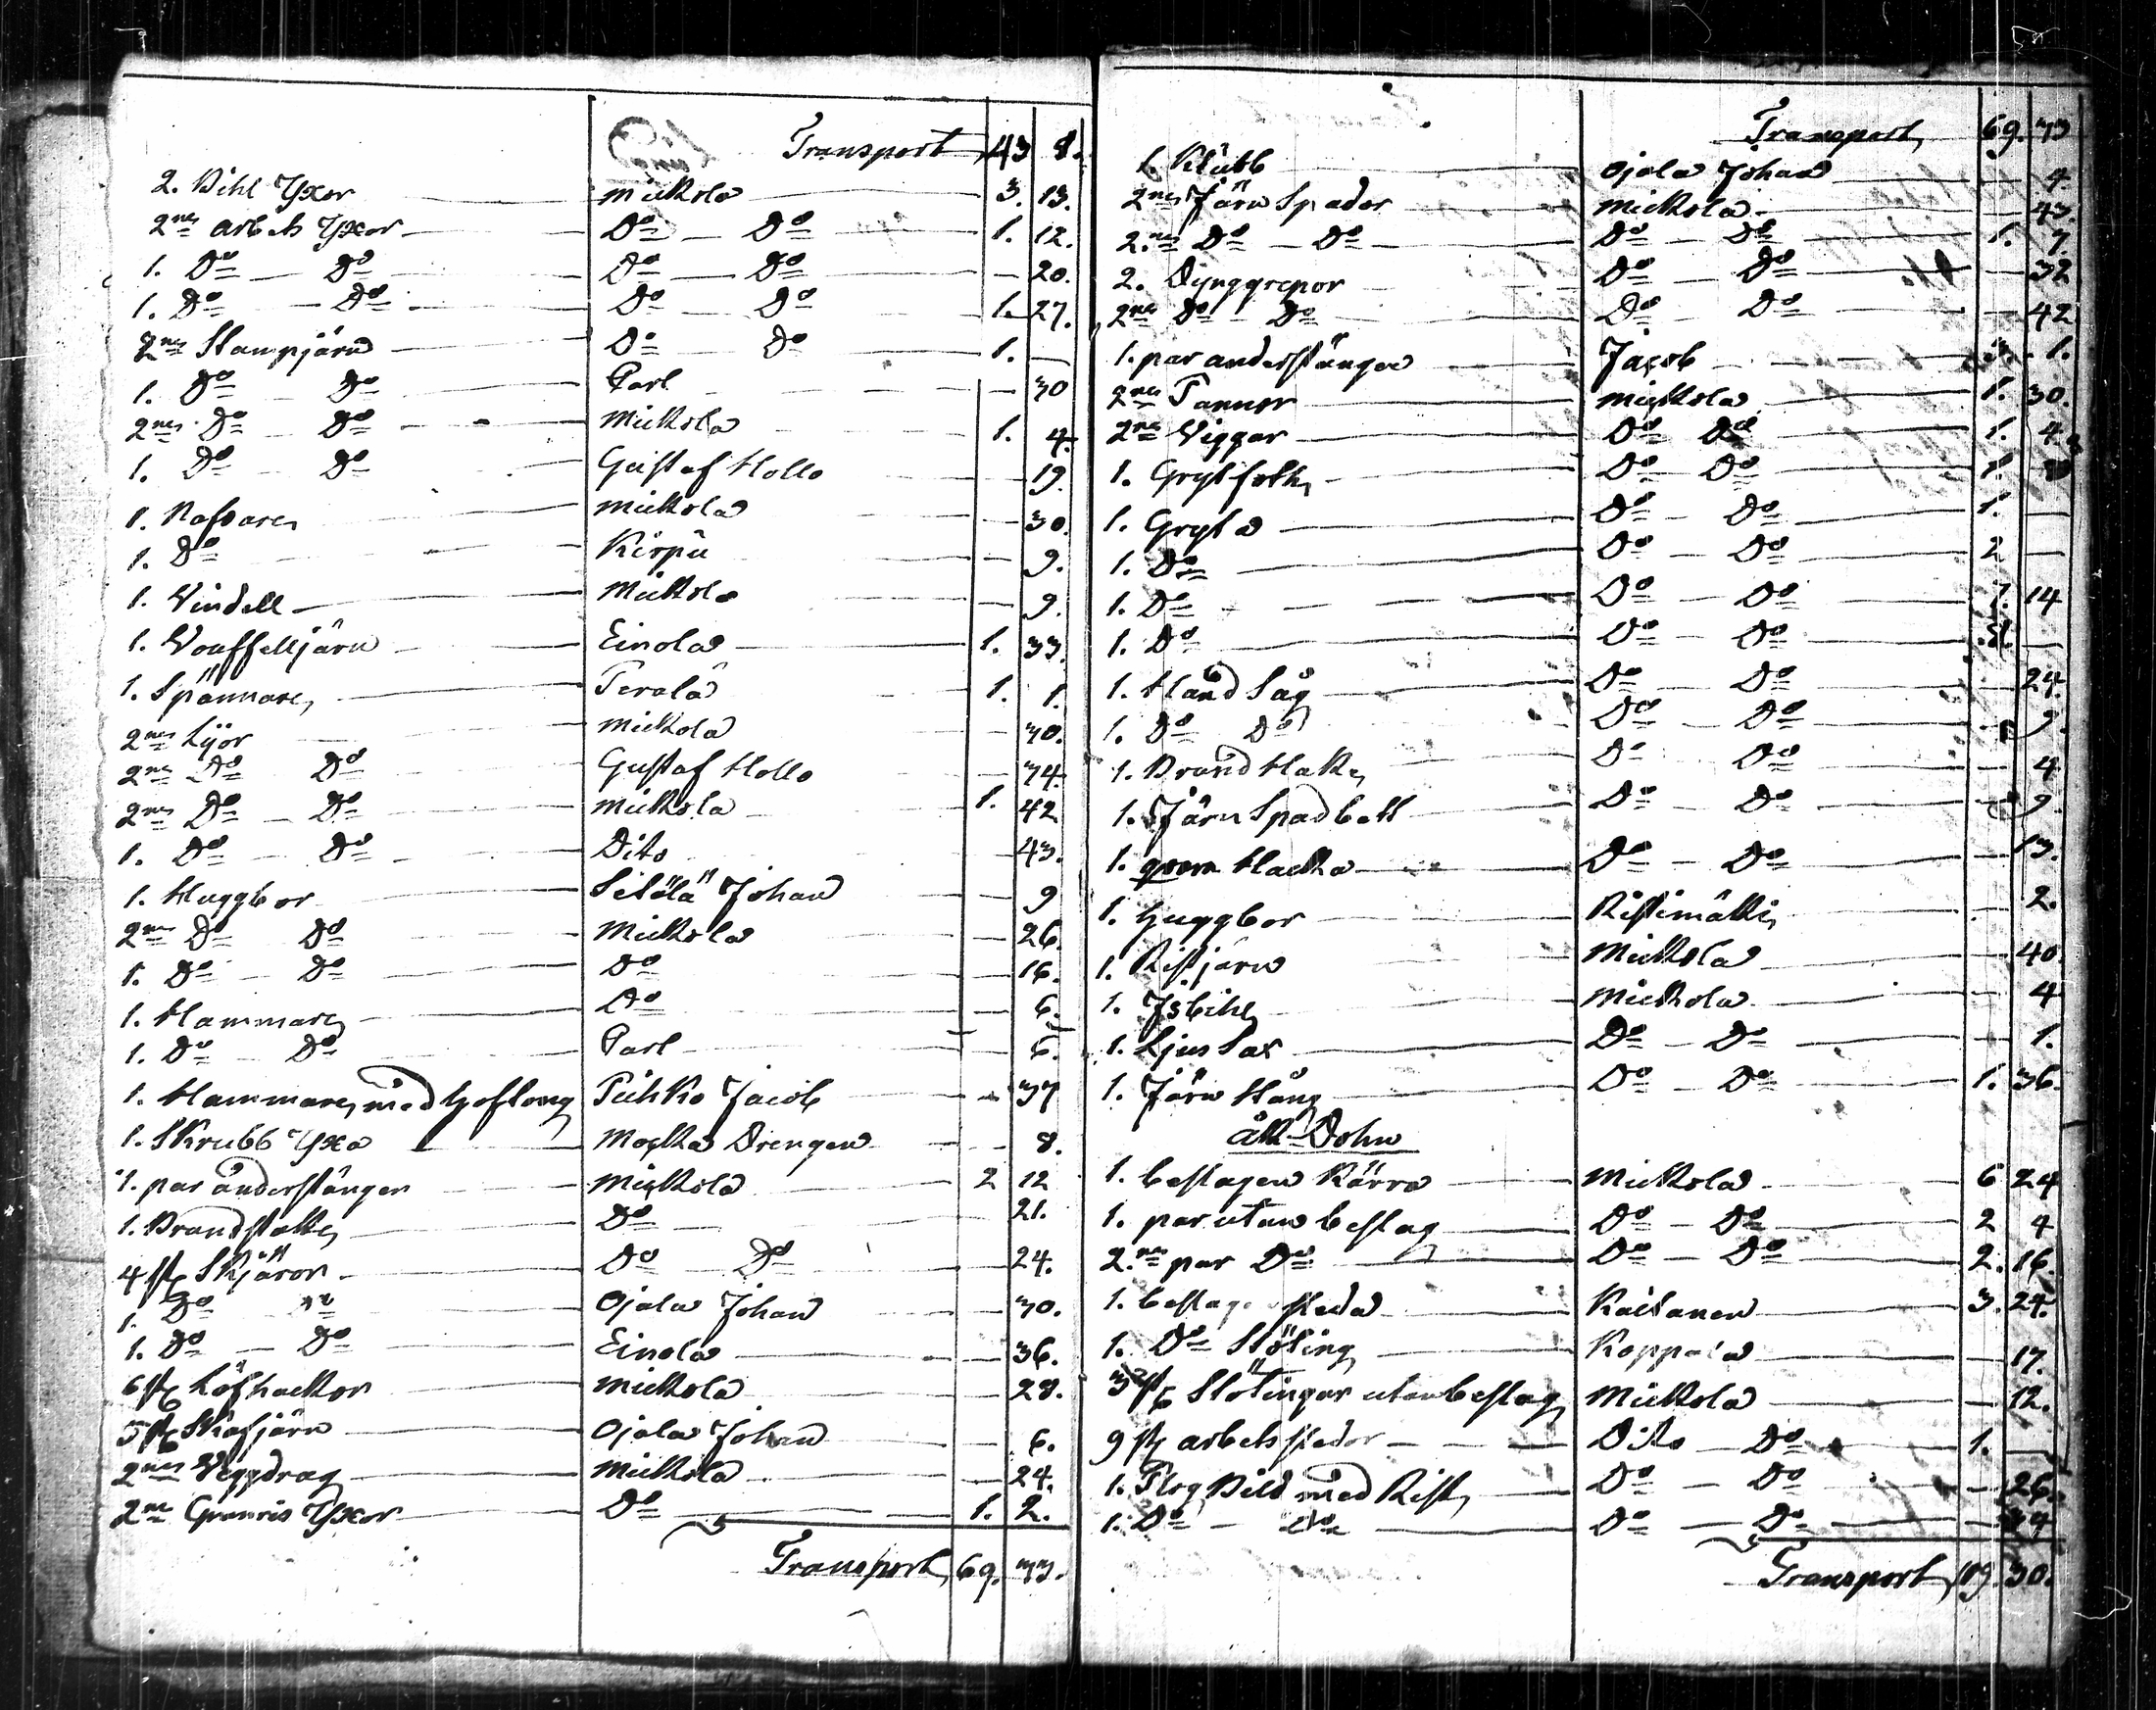 Transport 43 8.
2. Bihl Yxor Mickola 3. 13.
2nes arbets Yxor Do Do 1. 12.
1. Do Do Do Do 20.
1. Do Do Do Do 1. 27.
2nes Stampjärn Do Do 1.
1. Do Do Carl 30
2nes Do Do Mickola 1. 4.
1. Do Do Gustaf Hollo 19.
1. Nafvare Mickola 30.
1. Do Kirpu 9.
1. Vindell Mickola 9.
1. Vouffelljärn Einola 1. 33.
1. Spännare Perälä 1. 1.
2nes Lijor Mickola 30.
2ne Do Do Gustaf Hollo 34.
2nes Do Do Mickola 1. 42
1. Do Do Dito 43.
1. Huggbor Seteelä Johan 9
2ne Do Do Mickola 26.
1. Do Do Do 16.
1. Hammare Do 6.
1. Do Do Carl 6.
1. Hammare med hoftong Puhko Jacob 37
1. Skrubb Yxa Drengen 8.
1. par anderstänger Mickola 2 12
1. Do 21.
4 st Skjäror Do Do 24.
1. Do Do Ojala Johan 30.
1. Do Do Einola 36.
6 st Löfhackor Mickola 28.
5 st Skafjärn Ojala Johan 6.
2nes Veggdrag Mickola 24.
2ne Granris Yxor Do 1. 2.
Transport 69. 33.
Transport 69. 33
1. Klubb Ojala Johan 4.
2nes Järn Spador Mickola 43.
2.nes Do Do Do Do 1. 7.
2. Dynggrepor Do Do 32
2ne Do Do Do Do 42
1. par anderstänger Jacob 1.
2nes Pannor Mickola 1. 30.
2ne Viggar Do Do 1. 4.
1. Grytfoth Do Do 1.
1. Gryta Do Do 1.
1. Do Do Do 2
1. Do Do Do 7. 14
1. Do Do Do
1. Hand Såg Do Do 24
1. Do Do Do Do 9.
1. Brand Hake Do Do 4
1. Järn Spadbett Do Do 9.
1. qvarn Hacka Do Do 13.
1. Huggbor Ristimäki 2.
1. Ristjärn Mickola 40.
1. Isbihl Mickola 4
1. Ljus Sax Do Do 1.
1. Järn Stång Do Do 1. 36.
åkDohn
1. beslagen Kärra Mickola 6 24
1. par utan beslag Do Do 2 4
2.ne par Do Do Do 2. 16.
1. släda Kaitanen 3. 24.
1. Do Slöting Koppala 17.
3 st Slötingar utan beslag Mickola 12.
9 st arbets slädor Dito Do 1.
1. Plog Bild med Rist Do Do 26.
1. Do Do Do Do
Transport 109. 30.